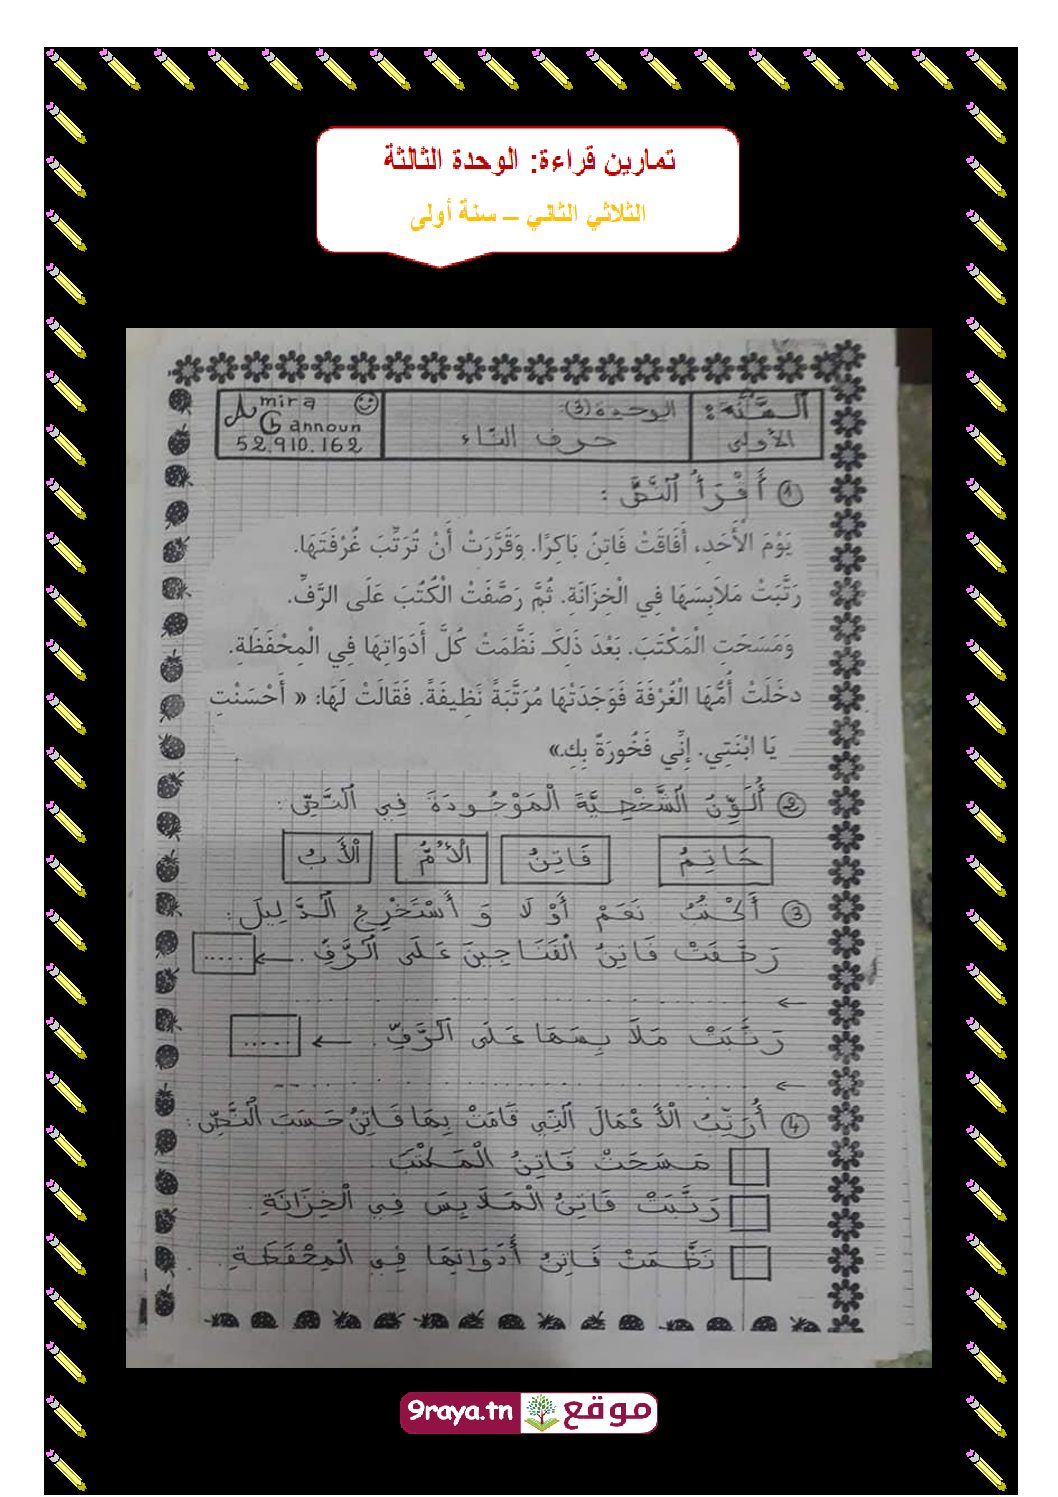 تمارين قراءة: الوحدة الثالثة
الثلاثي الثاني – سنة أولى
السَّنَة: الأولى
الوحدة (3):
حرف التاء
Amira Gannoun
52.910.162
1 أَقْرَأُ النَّصَّ :
يَوْمَ الْأَحَدِ، أَفَاقَتْ فَاتِنُ بَاكِرًا. وَقَرَّرَتْ أَنْ تُرَتِّبَ غُرْفَتَهَا.
رَتَّبَتْ مَلَابِسَهَا فِي الْخِزَانَة. ثُمَّ رَصَّفَتْ الْكُتُبَ عَلَى الرَّفِّ.
وَمَسَحَتِ الْمَكْتَبَ. بَعْدَ ذَلِكَ نَظَّمَتْ كُلَّ أَدَوَاتِهَا فِي الْمِحْفَظَةِ.
دخَلَتْ أُمُّهَا الْغُرْفَةَ فَوَجَدَتْهَا مُرَتَّبَةً نَظِيفَةً. فَقَالَتْ لَهَا: « أَحْسَنْتِ
يَا ابْنَتِي. إِنِّي فَخُورَةٌ بِكِ.»
2 أُلَوِّنُ الشَّخْصِيَّةَ الْمَوْجُودَةَ فِي النَّصِّ :
حَاتِمُ فَاتِنُ الْأُمُّ الْأَبُ
3 أَكْتُبُ نَعَمْ أَوْ لَا وَ أَسْتَخْرِجُ الدَّلِيلَ :
رَصَّفَتْ فَاتِنُ الْفَنَاجِينَ عَلَى الرَّفِّ. ← .....
← ..............................
رَتَّبَتْ مَلَابِسَهَا عَلَى الرَّفِّ. ← .....
← ..............................
4 أُرَتِّبُ الْأَعْمَالَ الَّتِي قَامَتْ بِهَا فَاتِنُ حَسَبَ النَّصِّ :
مَسَحَتْ فَاتِنُ الْمَكْتَبَ.
رَتَّبَتْ فَاتِنُ الْمَلَابِسَ فِي الْخِزَانَةِ.
نَظَّمَتْ فَاتِنُ أَدَوَاتِهَا فِي الْمِحْفَظَةِ.
موقع 9raya.tn